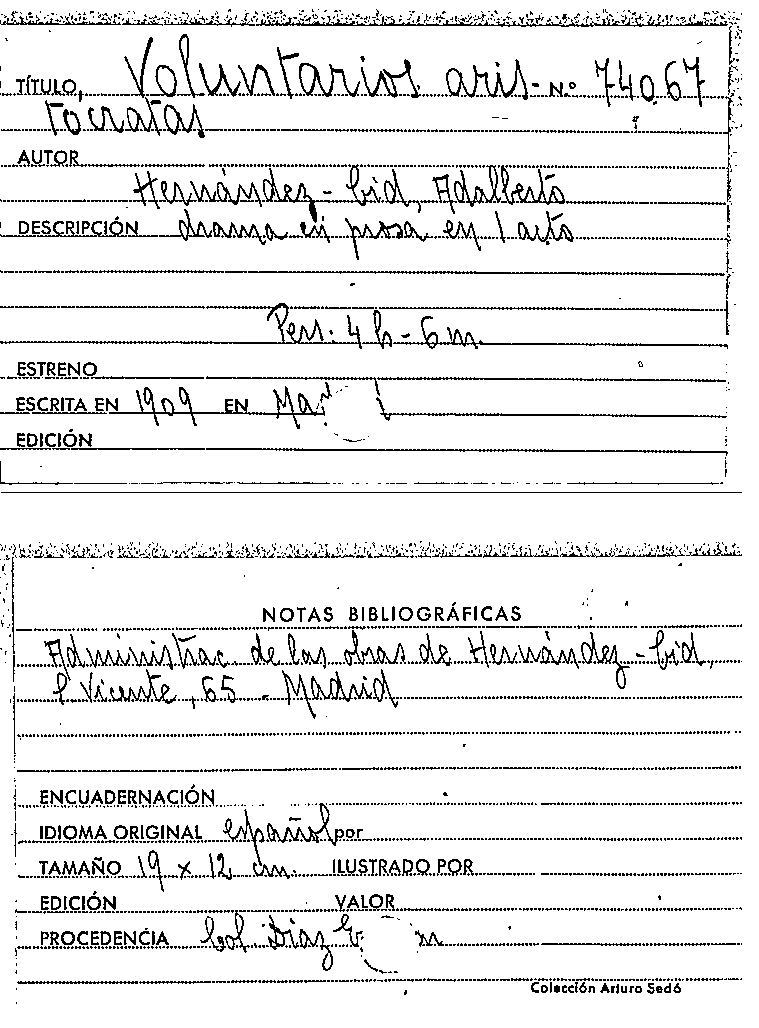 TÍTULO, Voluntarios aris- N.º 74067
tocratas
AUTOR
Hernández-Cid, Adalberto
DESCRIPCIÓN drama en prosa en 1 acto
Pers: 4 h - 6 m.
ESTRENO
ESCRITA EN 1909 EN
EDICIÓN
NOTAS BIBLIOGRÁFICAS
Administrac. de las obras de Hernández-Cid,
S Vicente, 65 - Madrid
ENCUADERNACIÓN
IDIOMA ORIGINAL español por
TAMAÑO 19 x 12 cm. ILUSTRADO POR
EDICIÓN VALOR
PROCEDENCIA Col. Díaz
Colección Arturo Sedó